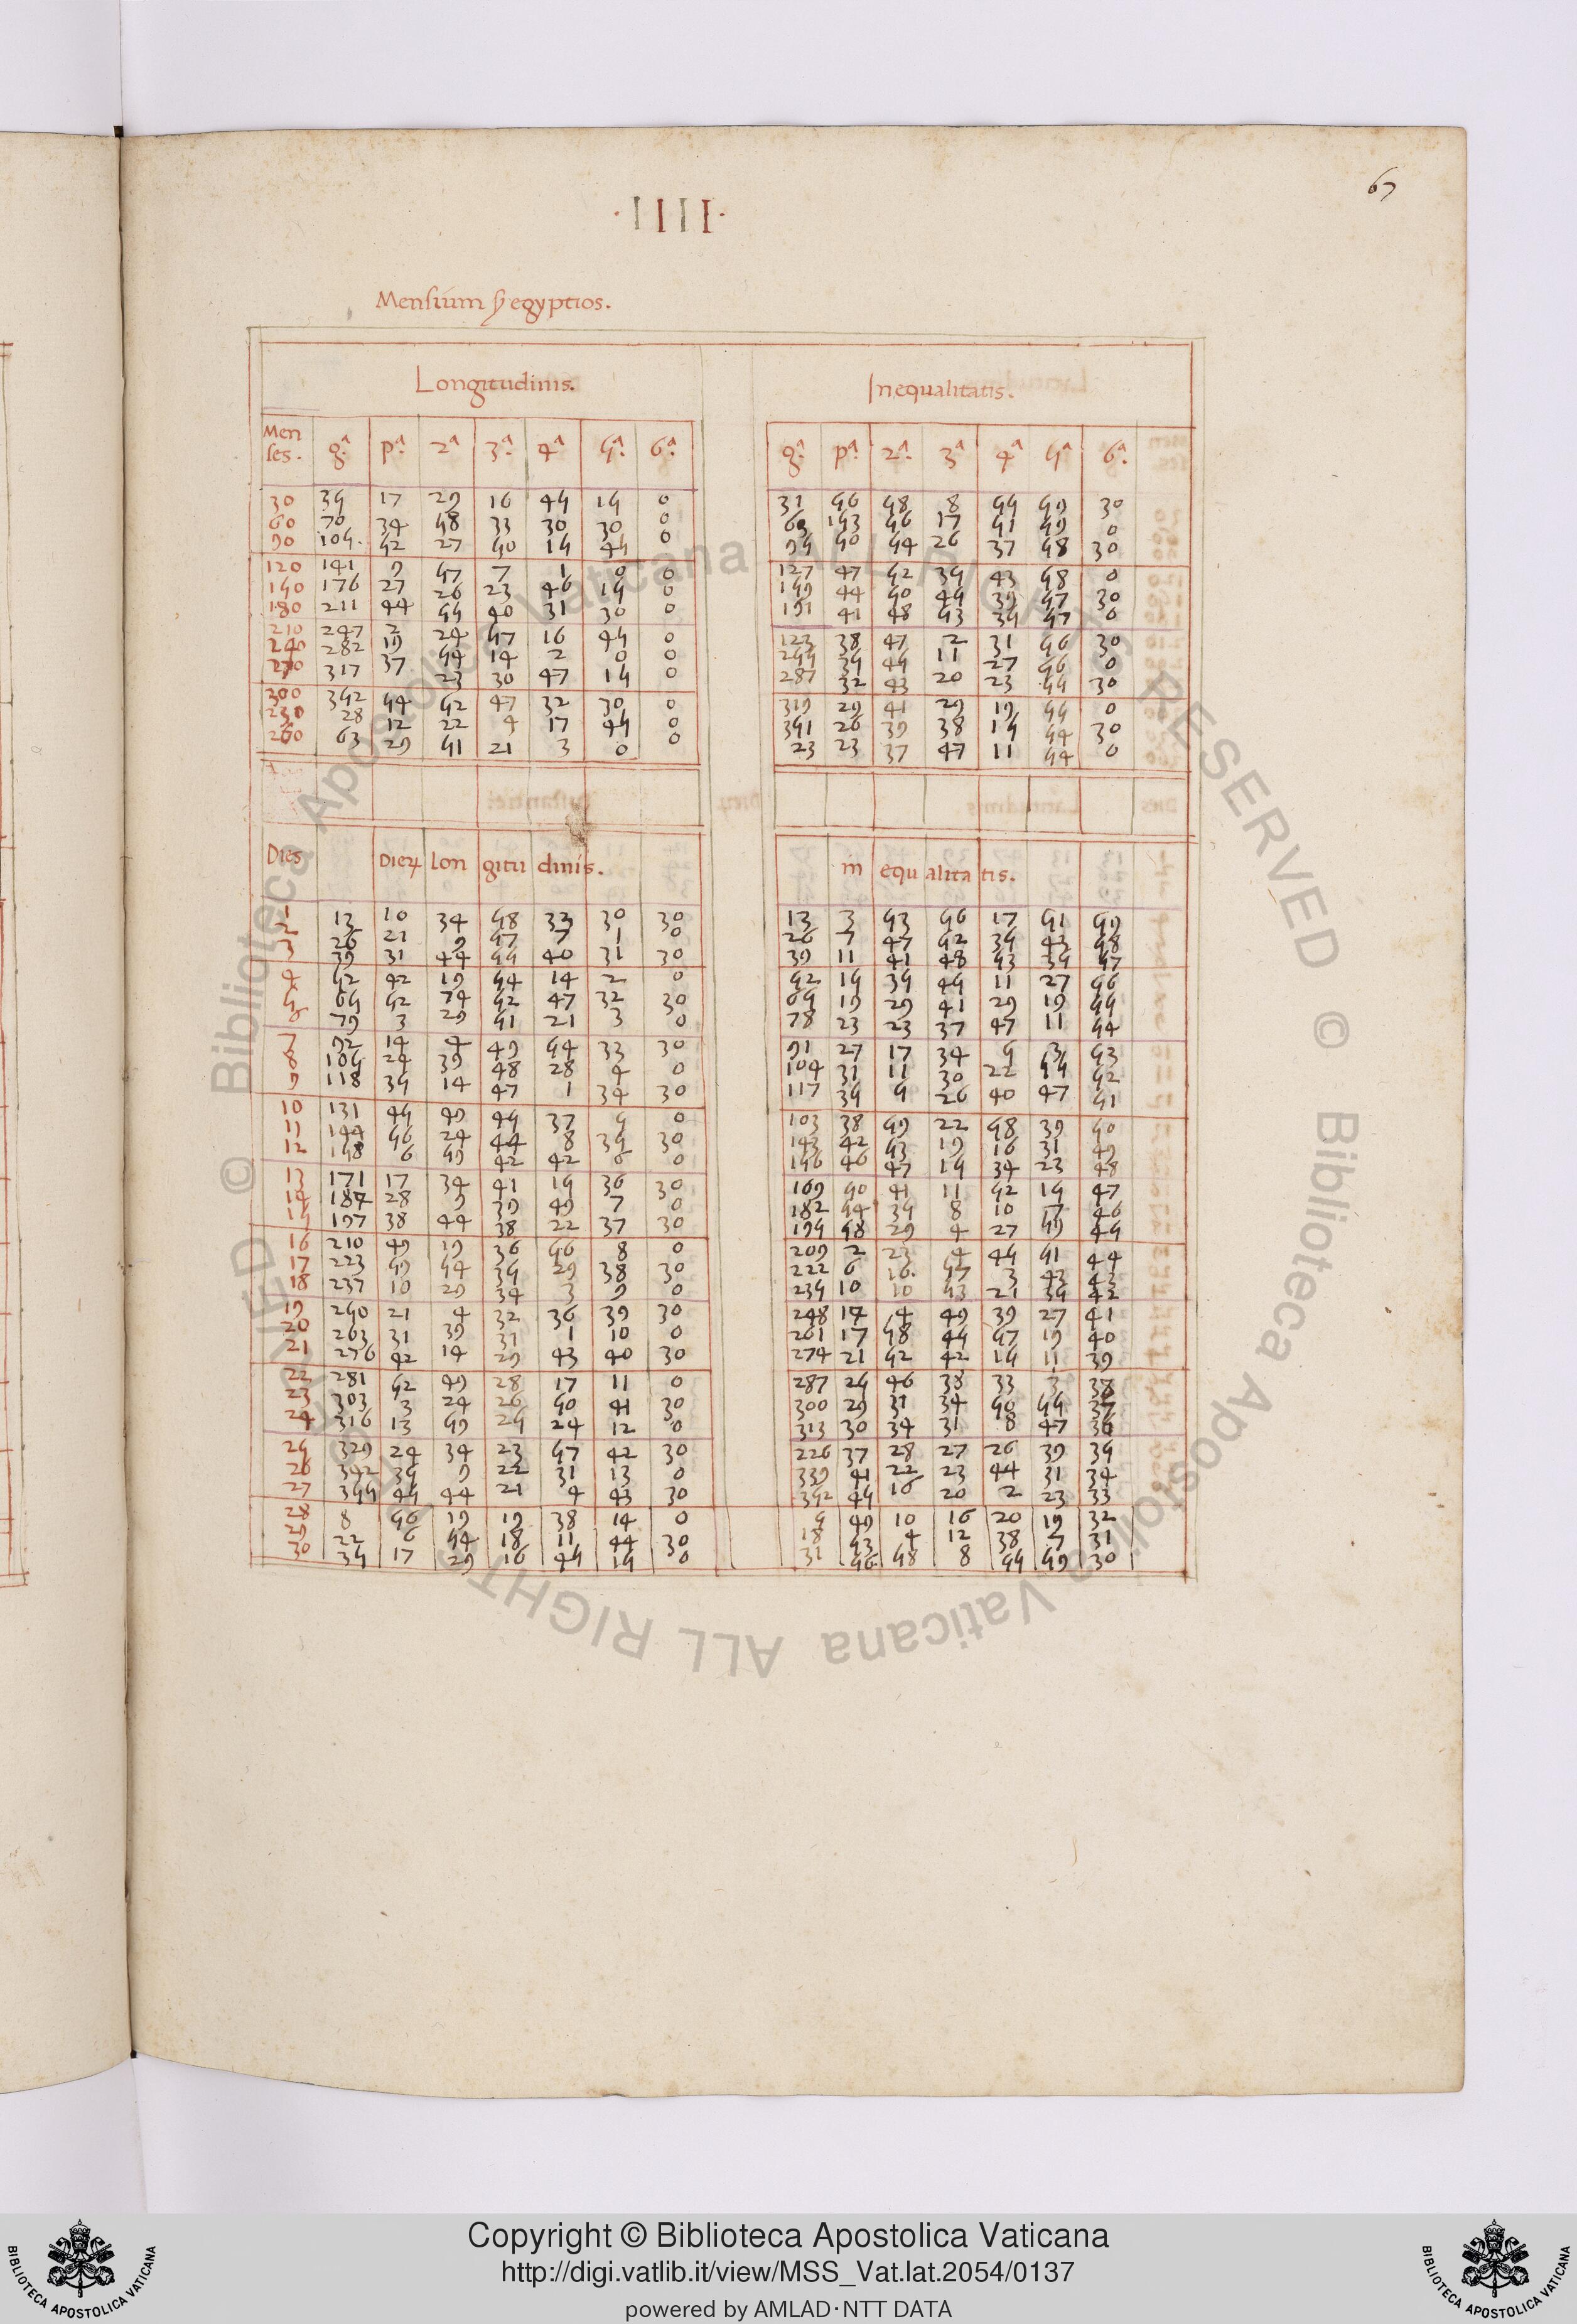 67
·IIII·
Mensium s̄ egyptios.
Longitudinis. Inequalitatis.
Men
ses. gᵃ. pᵃ. 2ᵃ 3ᵃ. 4ᵃ 5ᵃ. 6ᵃ. gᵃ. pᵃ 2ᵃ. 3ᵃ 4ᵃ 5ᵃ 6ᵃ.
30 35 17 29 16 45 15 0 31 56 58 8 55 59 30
60 70 34 58 33 30 30 0 63 153 56 17 51 59 0
90 105. 52 27 50 15 45 0 95 50 54 26 37 58 30
120 141 9 57 7 1 0 0 127 47 52 35 43 58 0
150 176 27 26 23 46 15 0 159 44 50 45 39 57 30
180 211 44 55 40 31 30 0 191 41 48 53 35 57 0
210 247 2 24 57 16 45 0 123 38 47 2 31 56 30
240 282 19 54 14 2 0 0 255 35 45 11 27 56 0
270 317 37 23 30 47 15 0 287 32 43 20 23 55 30
300 352 54 52 47 32 30 0 319 29 41 29 19 55 0
230 28 12 22 4 17 45 0 351 26 39 38 15 54 30
260 63 29 51 21 3 0 0 23 23 37 47 11 54 0
Dies Dieꝝ longitudinis. inequalitatis.
1 13 10 34 58 33 30 30 13 3 53 56 17 51 59
2 26 21 9 57 7 1 0 26 7 47 52 35 43 58
3 39 31 44 55 40 31 30 39 11 41 48 53 35 57
4 52 42 19 54 14 2 0 52 15 35 45 11 27 56
5 65 52 74 52 47 32 30 65 19 29 41 29 19 55
6 79 3 29 51 21 3 0 78 23 23 37 47 11 54
7 92 14 4 49 54 33 30 91 27 17 34 5 3 53
8 105 24 39 48 28 4 0 104 31 11 30 22 55 52
9 118 35 14 47 1 34 30 117 35 5 26 40 47 51
10 131 45 49 45 37 5 0 103 38 59 22 58 39 50
11 144 56 24 44 8 35 30 143 42 53 19 16 31 49
12 158 6 59 42 42 6 0 156 46 47 15 34 23 48
13 171 17 34 41 15 36 30 169 50 41 11 52 15 47
14 184 28 9 39 49 7 0 182 54 35 8 10 17 46
15 197 38 44 38 22 37 30 195 58 29 4 27 59 45
16 210 49 19 36 56 8 0 209 2 23 4 45 51 44
17 223 59 54 35 29 38 30 222 6 16. 57 3 43 43
18 237 10 29 34 3 9 0 235 10 10 53 21 35 42
19 250 21 4 32 36 39 30 248 14 4 49 39 27 41
20 263 31 39 31 1 10 0 261 17 58 45 57 19 40
21 276 42 14 29 43 40 30 274 21 52 42 15 11 39
22 281 52 49 28 17 11 0 287 25 46 38 33 3 38
23 303 3 24 26 50 41 30 300 29 37 34 50 55 37
24 316 13 59 25 24 12 0 313 30 34 31 8 47 36
25 329 24 34 23 57 42 30 226 37 28 27 26 39 35
26 342 35 9 22 31 13 0 339 41 22 23 44 31 34
27 355 45 44 21 4 43 30 352 45 16 20 2 23 33
28 8 56 19 19 38 14 0 5 49 10 16 20 19 32
29 22 6 54 18 11 44 30 18 53 4 12 38 7 31
30 35 17 29 16 45 15 0 31 56 58 8 55 59 30
© Biblioteca Apostolica Vaticana ALL RIGHTS RESERVED © Biblioteca Apostolica Vaticana ALL RIGHTS RESERVED
BIBLIOTECA APOSTOLICA VATICANA
Copyright © Biblioteca Apostolica Vaticana
http://digi.vatlib.it/view/MSS_Vat.lat.2054/0137
powered by AMLAD·NTT DATA
BIBLIOTECA APOSTOLICA VATICANA